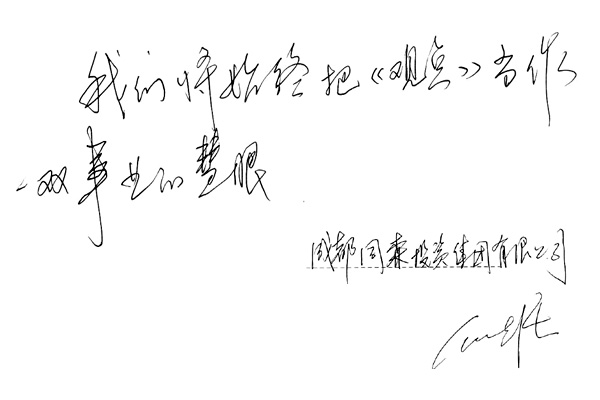 我们将始终把《观点》当作
一双事业的慧眼
成都同森投资集团有限公司